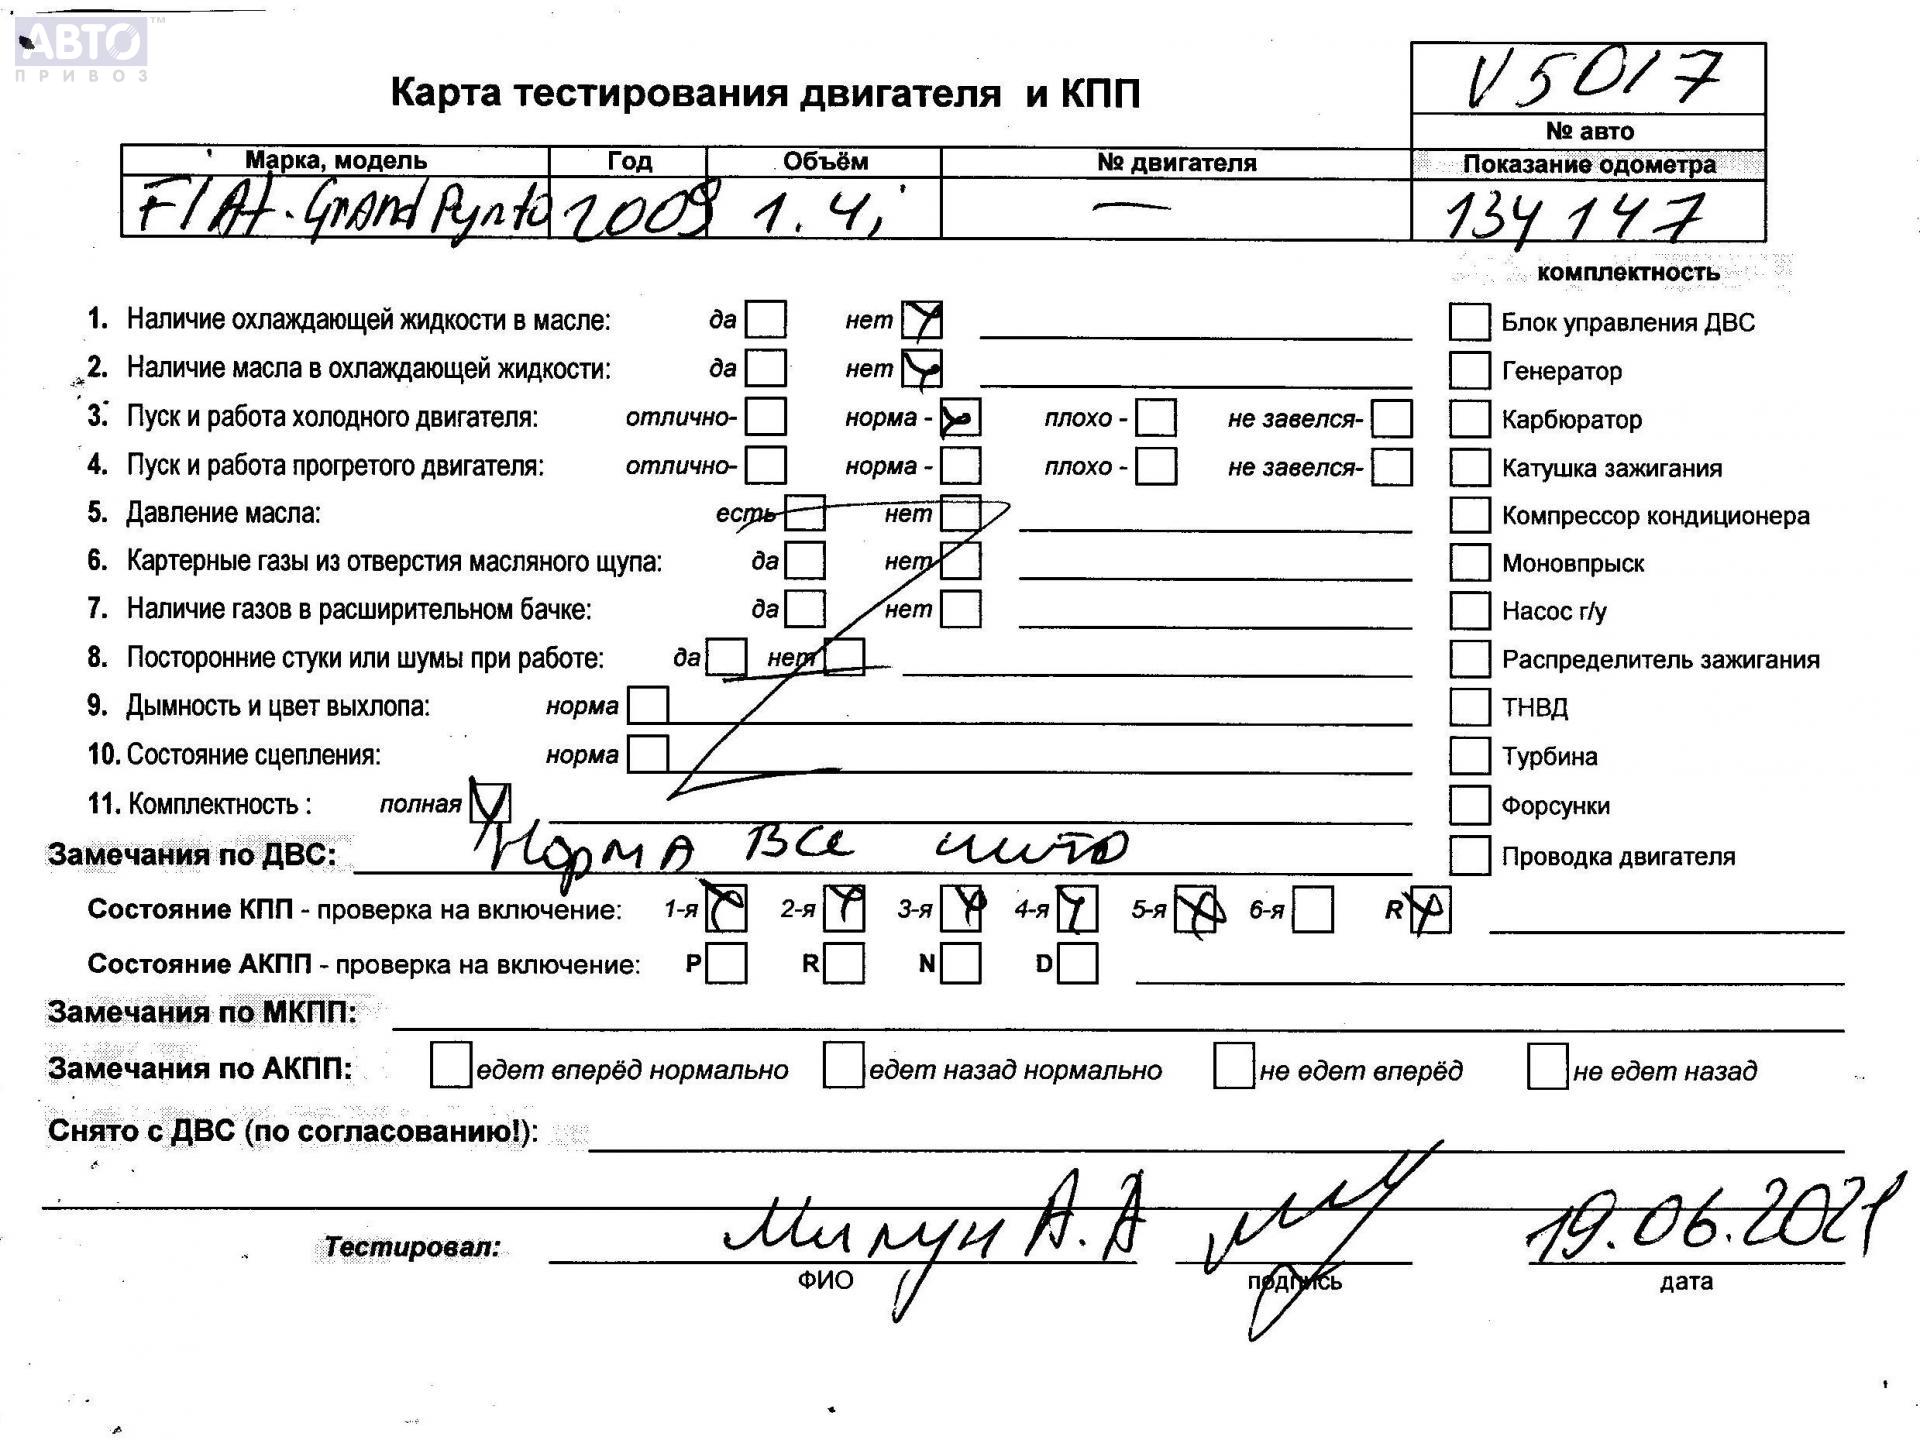 АВТО ™
ПРИВОЗ
Карта тестирования двигателя и КПП
V5017
№ авто
Марка, модель Год Объём № двигателя Показание одометра
FIAt. GrAnd Pynto 2009 1.4i — 134147
комплектность
1. Наличие охлаждающей жидкости в масле: да нет
Блок управления ДВС
2. Наличие масла в охлаждающей жидкости: да нет
Генератор
3. Пуск и работа холодного двигателя: отлично- норма - плохо - не завелся-
Карбюратор
4. Пуск и работа прогретого двигателя: отлично- норма - плохо - не завелся-
Катушка зажигания
5. Давление масла: есть нет
Компрессор кондиционера
6. Картерные газы из отверстия масляного щупа: да нет
Моновпрыск
7. Наличие газов в расширительном бачке: да нет
Насос г/у
8. Посторонние стуки или шумы при работе: да нет
Распределитель зажигания
9. Дымность и цвет выхлопа: норма
ТНВД
10. Состояние сцепления: норма
Турбина
11. Комплектность : полная
Форсунки
Замечания по ДВС: Норма Все
Проводка двигателя
Состояние КПП - проверка на включение: 1-я 2-я 3-я 4-я 5-я 6-я R
Состояние АКПП - проверка на включение: P R N D
Замечания по МКПП:
Замечания по АКПП: едет вперёд нормально едет назад нормально не едет вперёд не едет назад
Снято с ДВС (по согласованию!):
Тестировал: А.А 19.06.2021
ФИО подпись дата